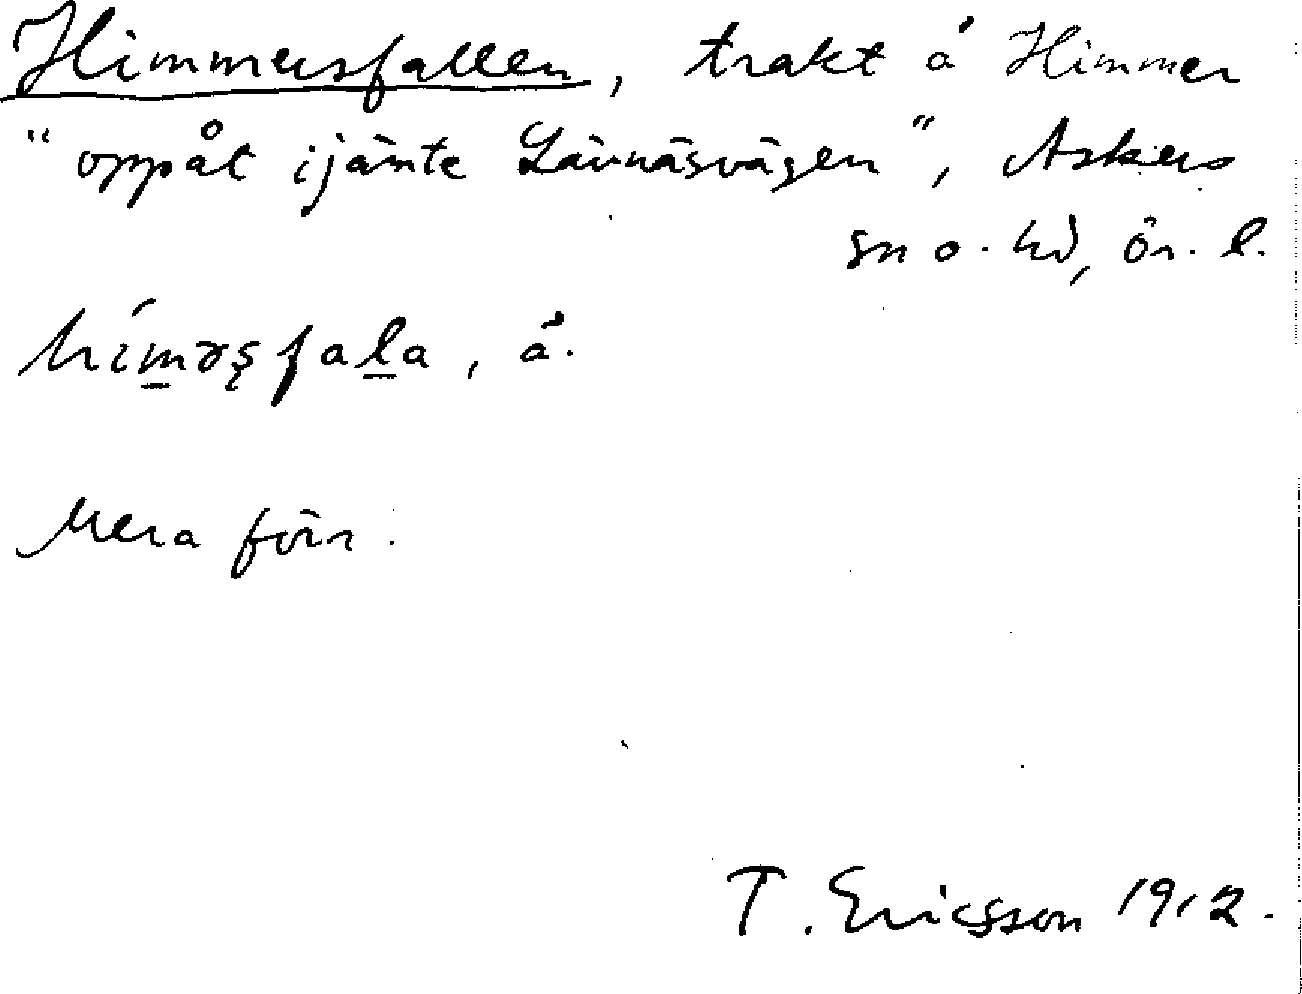 Himmersfallen, trakt å Himmer
"oppåt ijämte Lännäsvägen", Askers
sn o. hd, ör. l.
hímərşfaḻa, å.
Mera förr.
T. Ericsson 1912.